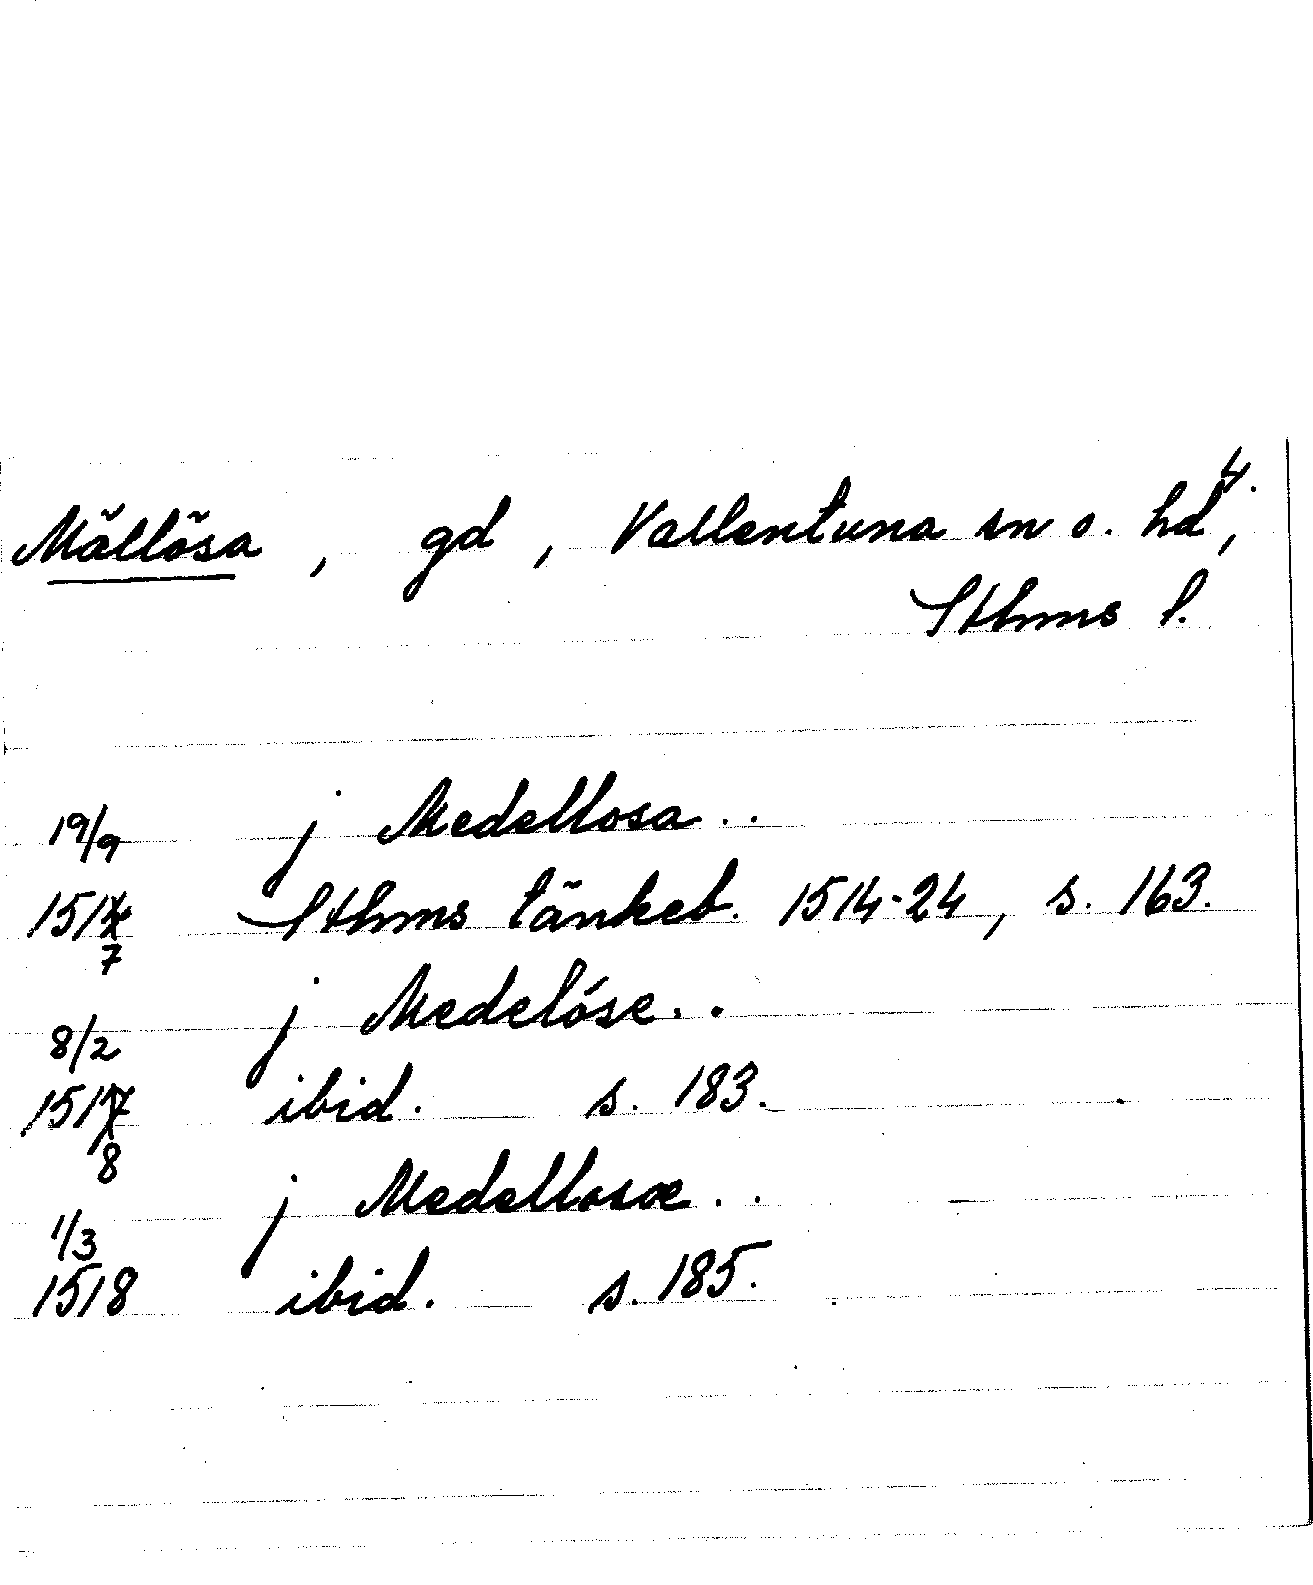 4.
Mällösa, gd, Vallentuna sn o. hd,
Sthms l.
19/9 j Medellosa..
1517 Sthms tänkeb. 1514-24, s. 163.
8/2 j Medelóse..
1518 ibid. s. 183.
1/3 j Medellosæ..
1518 ibid. s. 185.